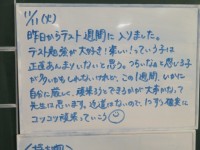 11/11(火)
昨日からテスト週間に入りました。
テスト勉強が大好き!楽しい!っていう子は
正直あんまりいないと思う。つらいなぁと感じる子
が多いかもしれないけれど、この1週間、いかに
自分に厳しく、頑張ることができるかが大事かなって
先生は思います。近道はないので、1つずつ確実に
コツコツ頑張っていこう